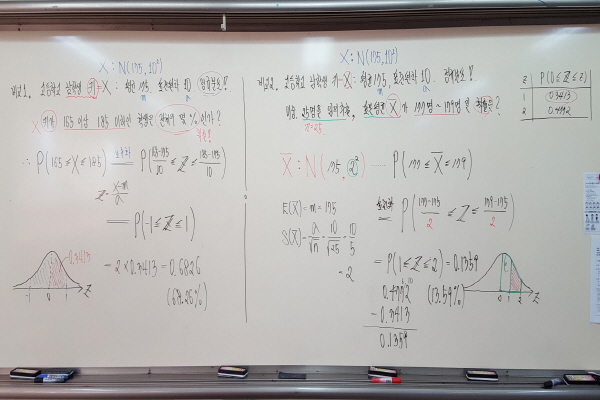 X : N(175, 10²)
비교1. 고등학교 남학생 키=X : 평균 175, 표준편차 10 정규분포!
m σ
X 키가 165 이상 185 이하인 학생은 전체의 몇 % 인가?
확률!
∴ P(165≤X≤185) 표준화 P(165-175/10 ≤ Z ≤ 185-175/10)
Z = X-m/σ
= P(-1≤Z≤1)
= 2×0.3413 = 0.6826
(68.26%)
0.3413
-1 0 1 Z
X : N(175, 10²)
비교2. 고등학교 남학생 키=X : 평균 175, 표준편차 10. 정규분포!
m σ
25명을 임의추출, 표본평균 X̄ 가 177명 ~ 179명 일 확률은?
n=25
X̄ : N(175, 2²) ---- P(177≤X̄≤179)
E(X̄)=m=175
S(X̄)=σ/√n=10/√25=10/5
=2
표준화 P(177-175/2 ≤ Z ≤ 179-175/2)
= P(1≤Z≤2) = 0.1359
(13.59%)
0.4772
-0.3413
0.1359
0 1 2 Z
z P(0≤Z≤z)
1 0.3413
2 0.4772